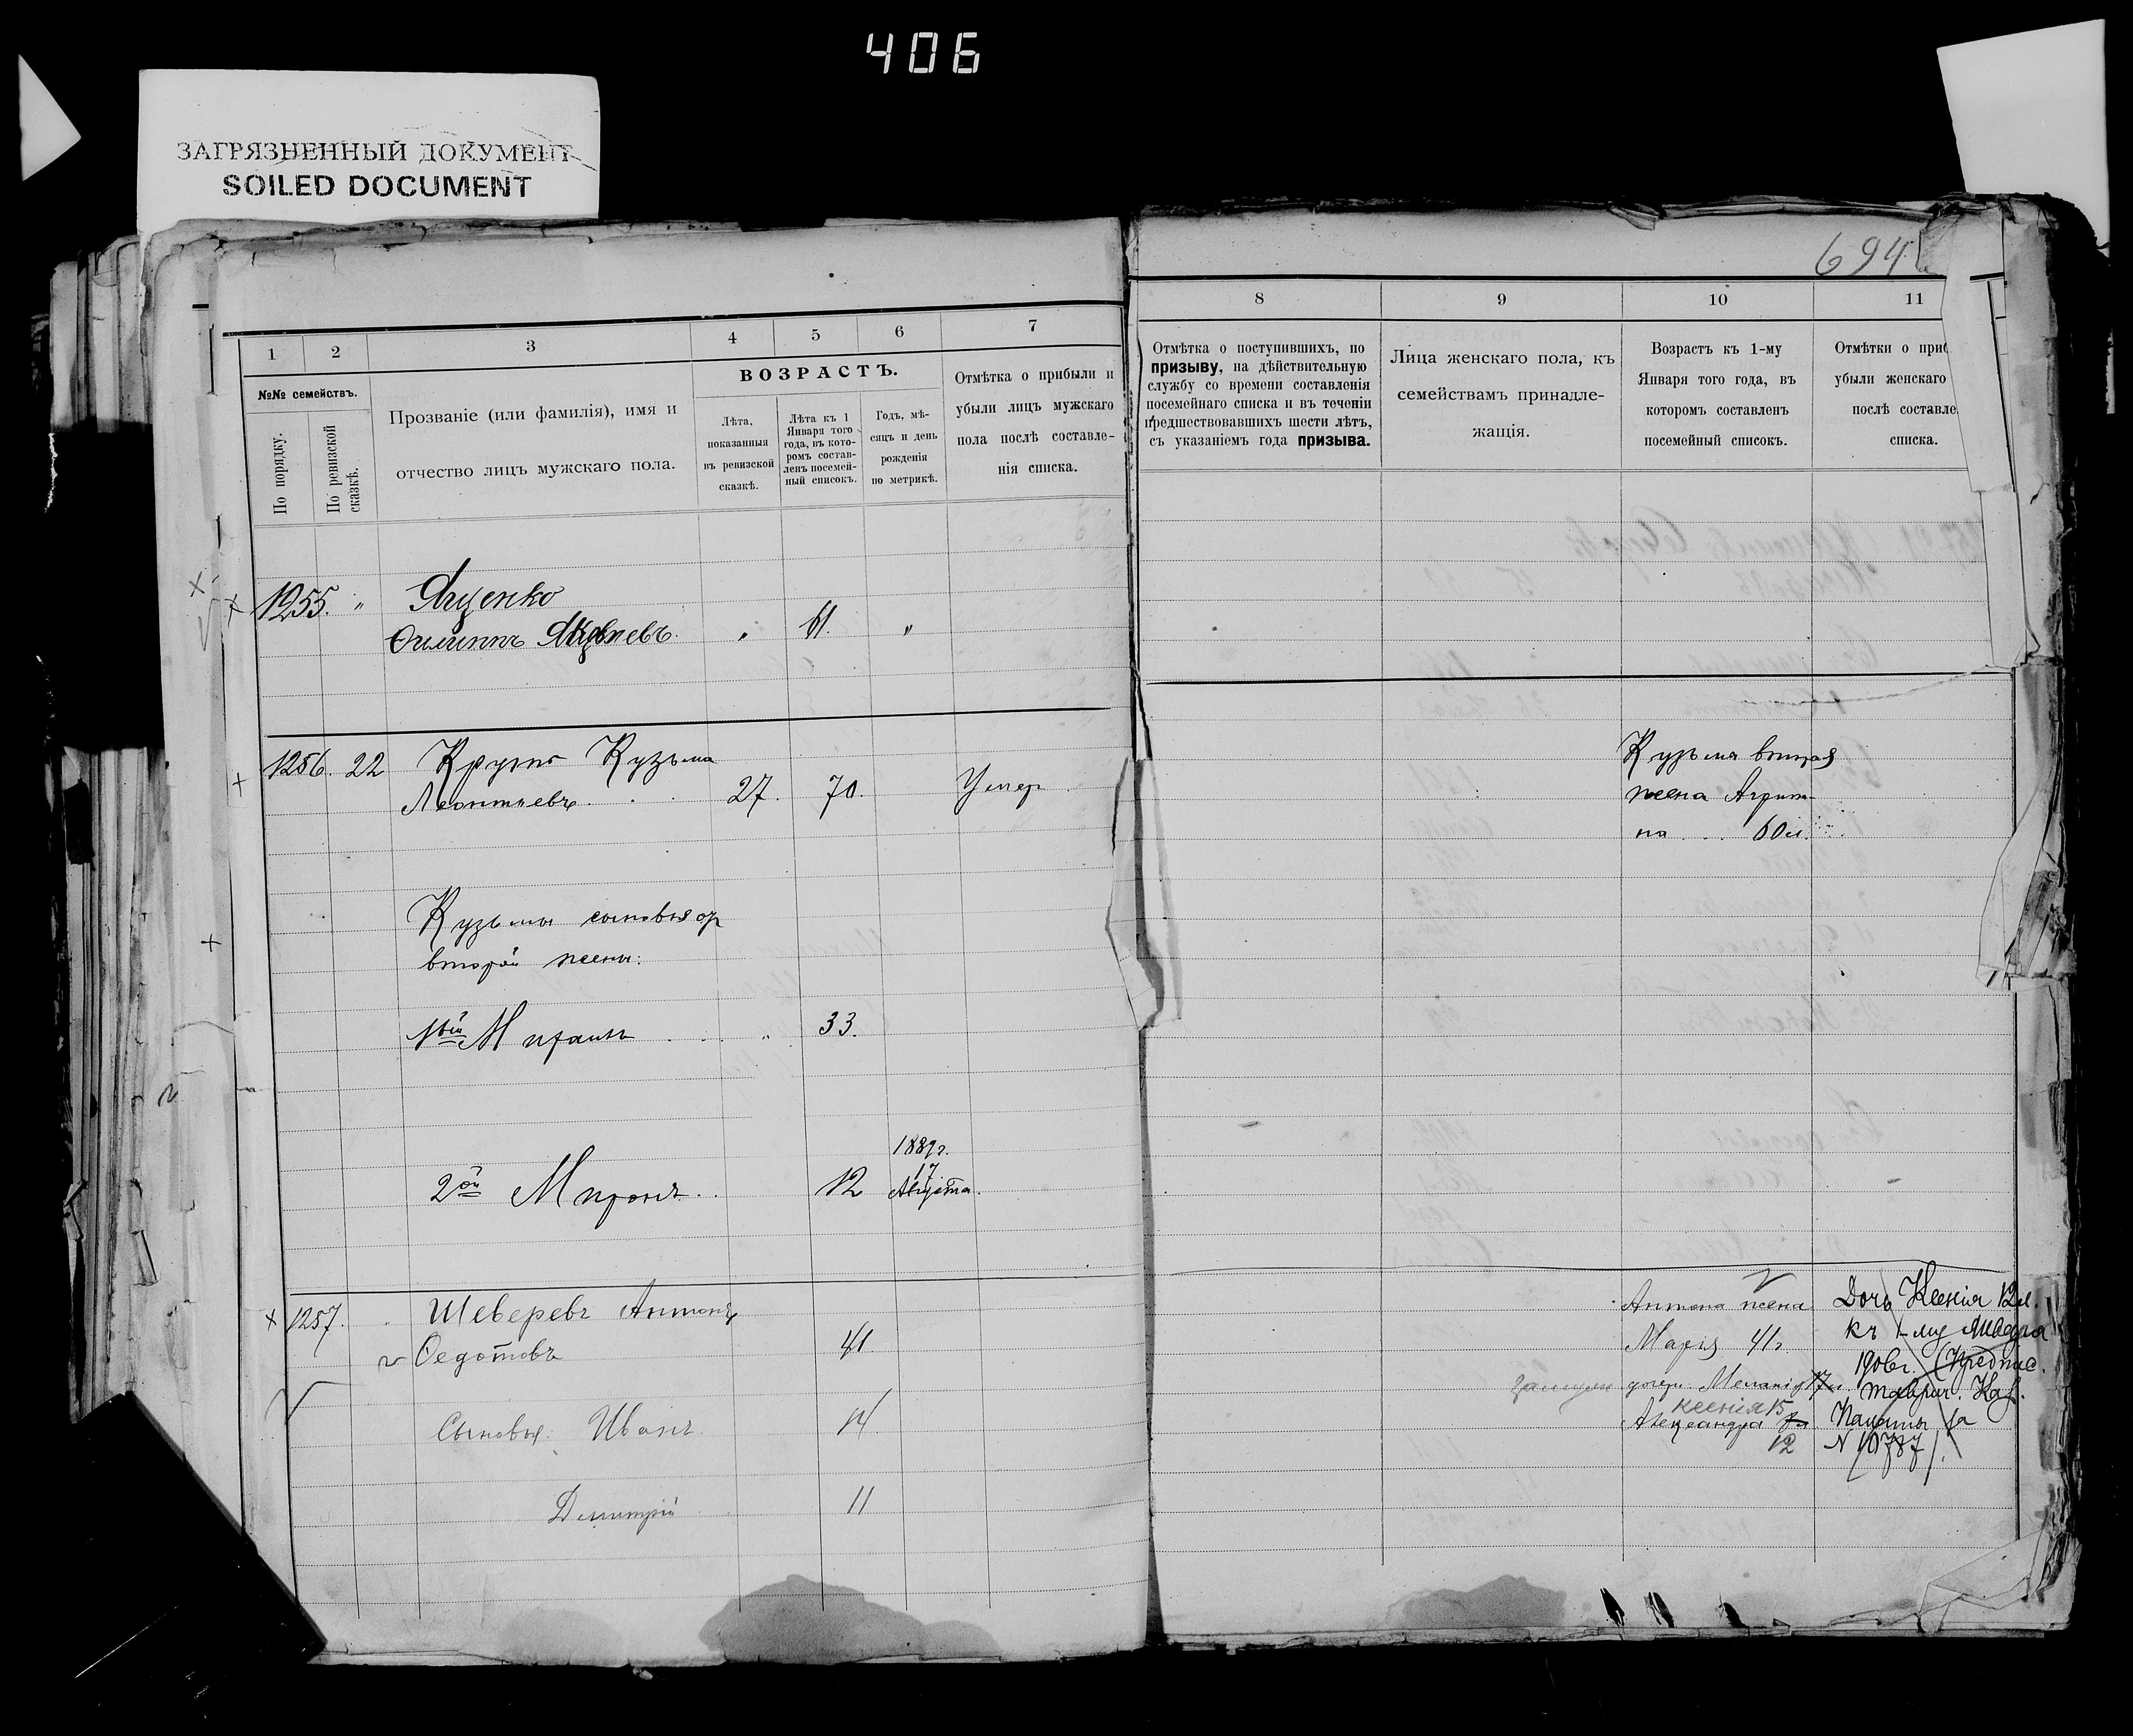 406
ЗАГРЯЗНЕННЫЙ ДОКУМЕНТ
SOILED DOCUMENT
694
1
2
3
4
5
6
7
№№ семействъ.
По порядку.
По ревизской сказкѣ.
Прозваніе (или фамилія), имя и
отчество лицъ мужскаго пола.
ВОЗРАСТЪ.
Лѣта,
показанныя
въ ревизской
сказкѣ.
Лѣта къ 1
Января того
года, въ кото-
ромъ состав-
ленъ посемей-
ный списокъ.
Годъ, мѣ-
сяцъ и день
рожденія
по метрикѣ.
Отмѣтка о прибыли и
убыли лицъ мужскаго
пола послѣ составле-
нія списка.
1255. " Ященко
Филиппъ " 61. "
1256. 22 Крутъ Кузьма
Леонтьевъ 27. 70. Умер
Кузьмы сыновья от
второй жены:
1вый 33.
1889 г.
17
2ой Миронъ 12 Августа.
1257. Шеверевъ Антонъ
Федотовъ 41
Сыновья: Иванъ 14
Димитрій 11
8
9
10
11
Отмѣтка о поступившихъ, по
призыву, на дѣйствительную
службу со времени составленія
посемейнаго списка и въ теченіи
предшествовавшихъ шести лѣтъ,
съ указаніемъ года призыва.
Лица женскаго пола, къ
семействамъ принадле-
жащія.
Возрастъ къ 1-му
Января того года, въ
которомъ составленъ
посемейный списокъ.
Отмѣтки о приб
убыли женскаго
послѣ составле
списка.
Кузьма вторая
жена Агрип-
на 60 л.
Антона жена
Марія 41 г
замужем дочери Меланія 17
Ксенія 15
Александра
12
Дочь Ксенія 12 л.
къ 1-му
1906 г. (Предпис.
Таврич. Каз.
Палаты за
N 10787).